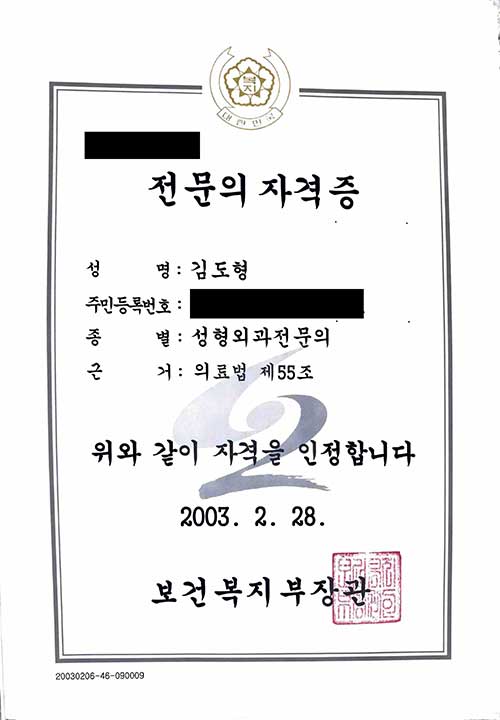 복지
대한민국
전문의 자격증
성 명 : 김도형
주민등록번호 :
종 별 : 성형외과전문의
근 거 : 의료법 제55조
위와 같이 자격을 인정합니다
2003. 2. 28.
보건복지부장관
20030206-46-090009